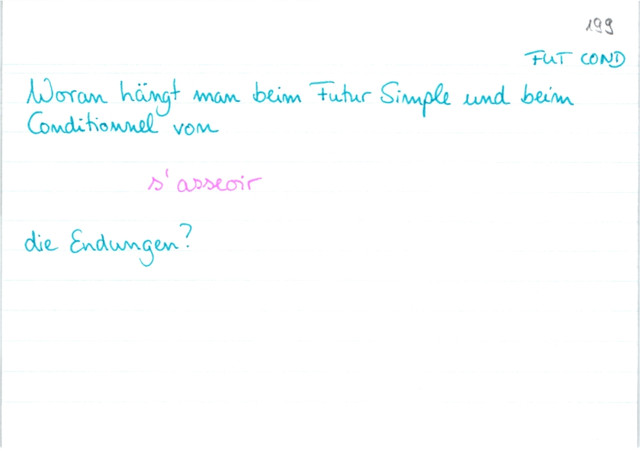 199
FUT COND
Woran hängt man beim Futur Simple und beim
Conditionnel von
s'asseoir
die Endungen?